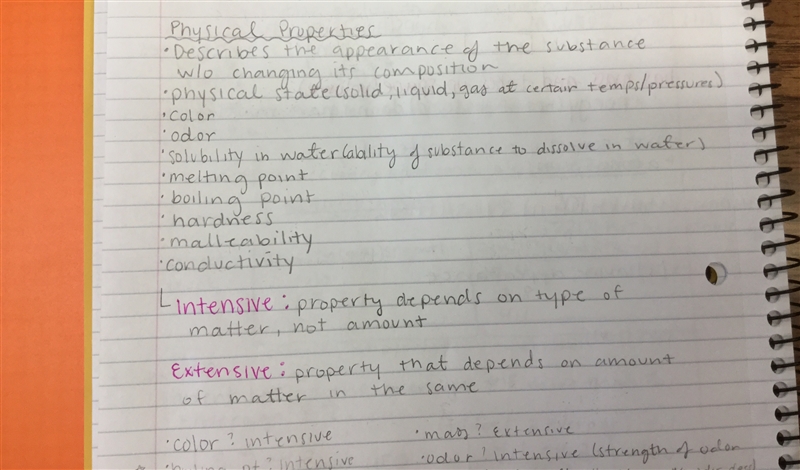 Physical Properties
• Describes the appearance of the substance
w/o changing its composition
• physical state (solid, liquid, gas at certain temps/pressures)
• color
• odor
• solubility in water (ability of substance to dissolve in water)
• melting point
• boiling point
• hardness
• malleability
• conductivity
Intensive: property depends on type of
matter, not amount
Extensive: property that depends on amount
of matter in the same
• color? intensive
• mass? Extensive
intensive
• odor? intensive (strength of odor